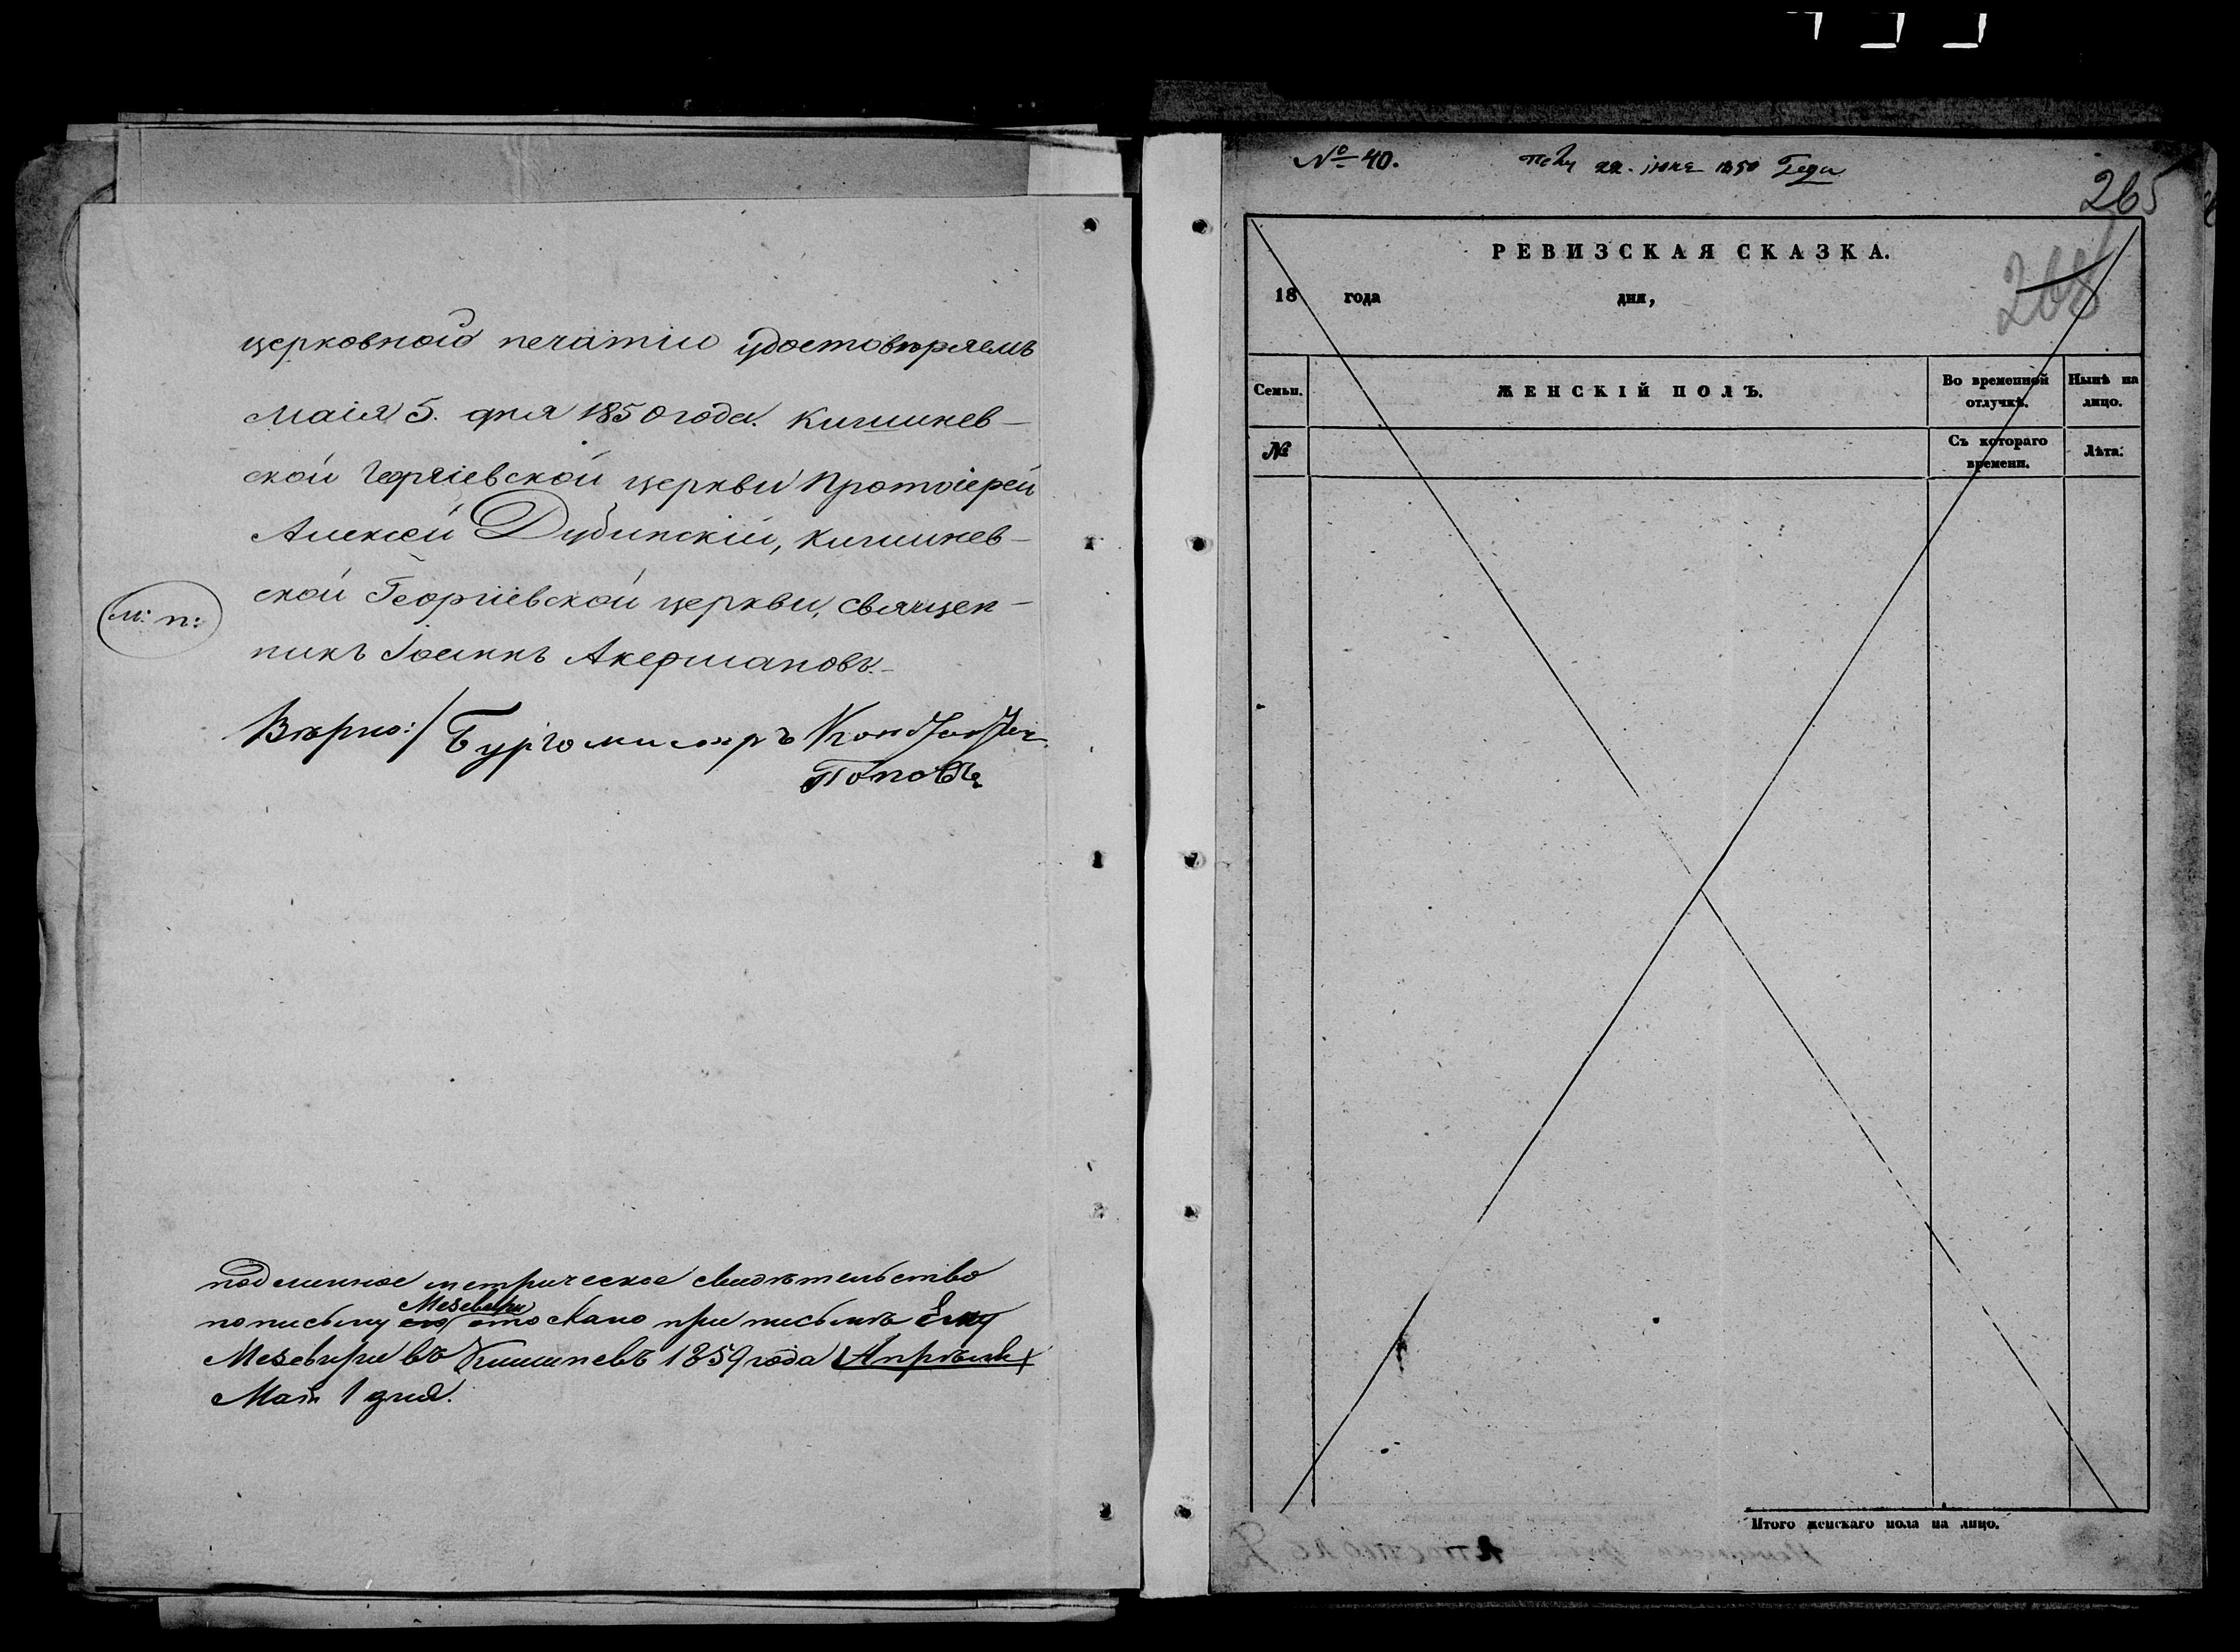 церковною печатію удостовѣряемъ
Маія 5. дня 1850 года. Кишинев-
ской Георгіевской церкви Протоіерей
Алексѣй Дубинскій, Кишинев-
ской Георгіевской церкви, Священ-
никъ Іоаннъ Акермановъ.
м: п:
Вѣрно:/ Бургомистръ Константин
Поповъ
подлинное метрическое свидѣтельство
по письму его Мезевири отослано при письмѣ Ему
Мезевири въ Кишиневъ 1859 года Апрѣля
Мая 1 дня.
№ 40. 22. июня 1850 Года
265
268
РЕВИЗСКАЯ СКАЗКА.
18 года дня,
Семьи. ЖЕНСКІЙ ПОЛЪ. Во временной отлучкѣ. Нынѣ на лицо.
№ Съ котораго времени. Лѣта.
Итого женскаго пола на лицо.